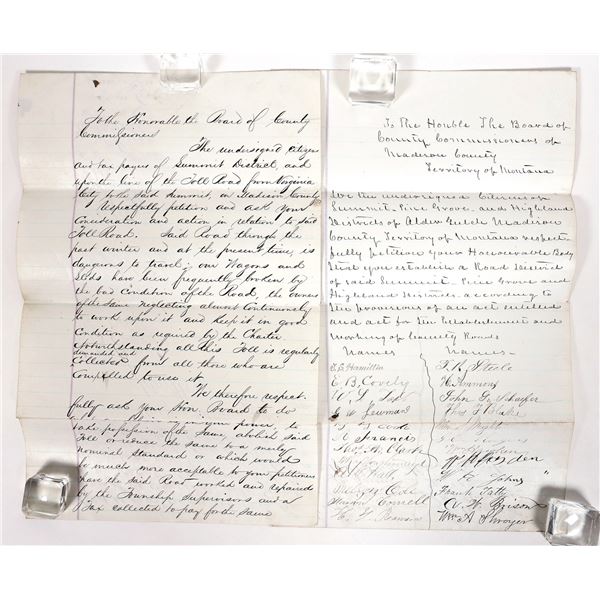 To the Honorable the Board of County
Commissioners
The undersigned Citizens
and tax payers of Summit District, and
upon the line of the Toll Road from Virginia
City to the said Summit, in Madison County
Respectfully petition and ask your
Consideration and action in relation to said
Toll Road. Said Road through the
past winter and at the present time, is
dangerous to travel; our Wagons and
Sleds have been frequently broken by
the bad Condition of the Road, the owners
of the same neglecting almost Continuously
to work upon it and keep it in good
Condition as required by the Charter
Notwithstanding all this Toll is regularly
demanded and
Collected from all those who are
Compelled to use it
We therefore respect-
fully ask your Hon. Board to do
all in your power, to
take possession of the same, abolish said
Toll or reduce the same to a merely
nominal standard or which would
be much more acceptable to your petitioners
have the said Road worked and repaired
by the Township Supervisors and a
Tax collected to pay for the same
To The Honble The Board of
County Commissioners of
Madison County
Territory of Montana
We the undersigned Citizens of
Summit, Pine Grove and Highland
Districts of Alder Gulch Madison
County Territory of Montana respect-
fully petition your Honourable Body
that you establish a Road District
of said Summit, Pine Grove and
Highland Districts according to
the provisions of an act entitled
and act for the Establishment and
Working of County Roads
Names Names
Hamilton F. R. Steele
E B. Covely H Ammons
W. L. John G. Schaefer
Newman Thos Blake
Cook Wright
Francis
Thos A. Clark

W Johns "
George Cole Frank Tatty
Connell A. W. Brison
Wm A Shroyer